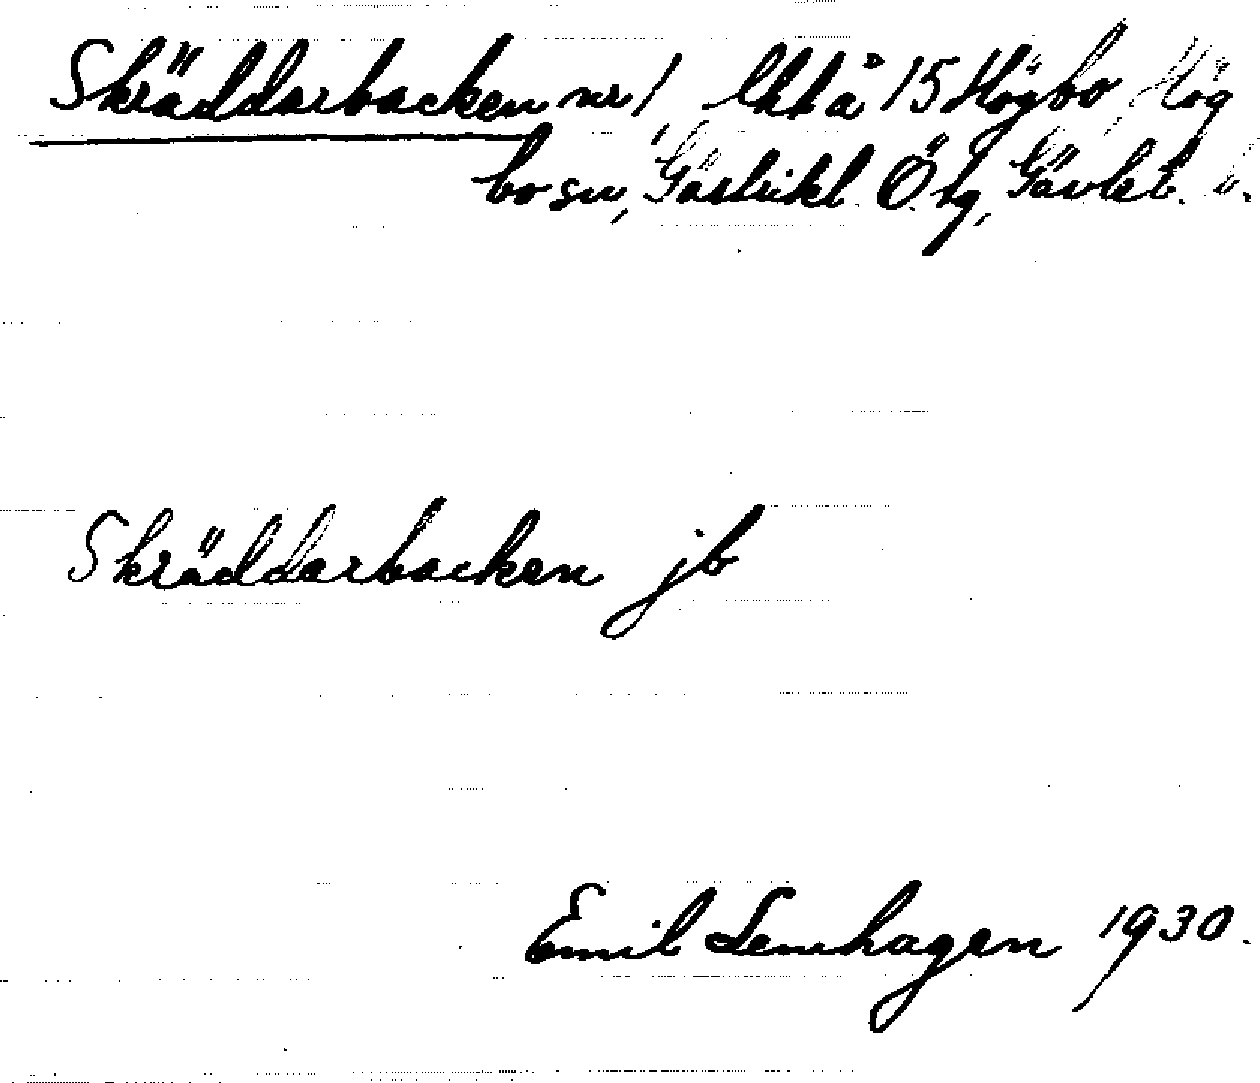 Skräddarbacken nr 1, lht å 15 Högbo, Hög
bo sn, Gästrikl. Ö. tg, Gävleb. l.
Skräddarbacken jb
Emil Lenhagen 1930.